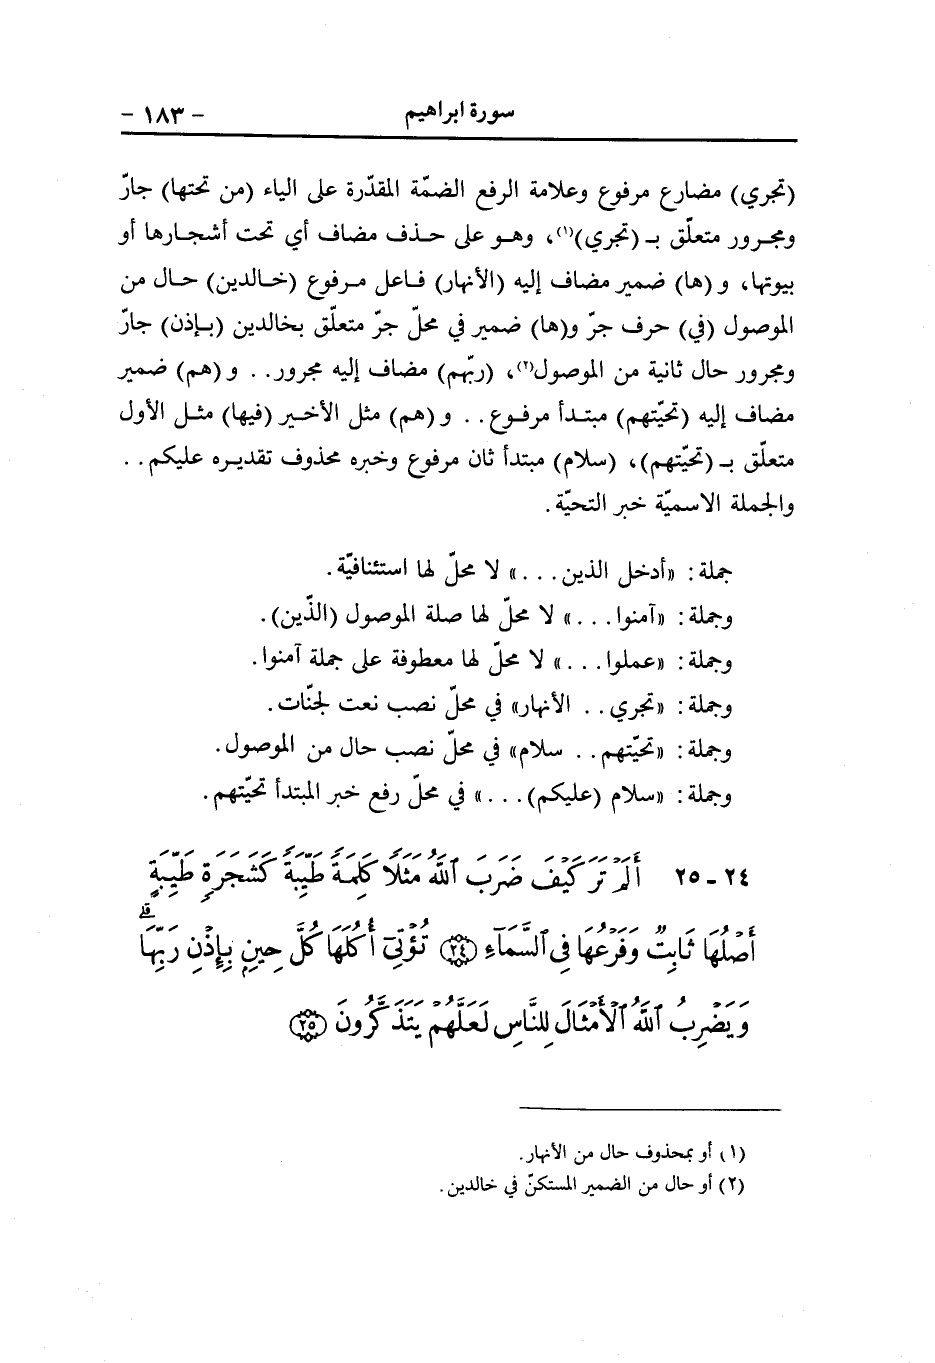 سورة ابراهيم
- ١٨٣ -
(تجري) مضارع مرفوع وعلامة الرفع الضمّة المقدّرة على الياء (من تحتها) جارّ
ومجرور متعلّق بـ (تجري)(١)، وهو على حذف مضاف أي تحت أشجارها أو
بيوتها، و (ها) ضمير مضاف إليه (الأنهار) فاعل مرفوع (خالدين) حال من
الموصول (في) حرف جرّ و(ها) ضمير في محلّ جرّ متعلّق بخالدين (بإذن) جارّ
ومجرور حال ثانية من الموصول(٢)، (ربّهم) مضاف إليه مجرور.. و (هم) ضمير
مضاف إليه (تحيّتهم) مبتدأ مرفوع.. و (هم) مثل الأخير (فيها) مثل الأول
متعلّق بـ (تحيّتهم)، (سلام) مبتدأ ثان مرفوع وخبره محذوف تقديره عليكم..
والجملة الاسميّة خبر التحيّة.
جملة: «أدخل الذين...» لا محلّ لها استئنافيّة.
وجملة: «آمنوا...» لا محلّ لها صلة الموصول (الذّين).
وجملة: «عملوا...» لا محلّ لها معطوفة على جملة آمنوا.
وجملة: «تجري.. الأنهار» في محلّ نصب نعت لجنّات.
وجملة: «تحيّتهم.. سلام» في محلّ نصب حال من الموصول.
وجملة: «سلام (عليكم)...» في محلّ رفع خبر المبتدأ تحيّتهم.
٢٤ - ٢٥ أَلَمْ تَرَ كَيْفَ ضَرَبَ ٱللَّهُ مَثَلًا كَلِمَةً طَيِّبَةً كَشَجَرَةٍ طَيِّبَةٍ
أَصْلُهَا ثَابِتٌ وَفَرْعُهَا فِى ٱلسَّمَآءِ ﴿٢٤﴾ تُؤْتِىٓ أُكُلَهَا كُلَّ حِينٍۭ بِإِذْنِ رَبِّهَا ۗ
وَيَضْرِبُ ٱللَّهُ ٱلْأَمْثَالَ لِلنَّاسِ لَعَلَّهُمْ يَتَذَكَّرُونَ ﴿٢٥﴾
(١) أو بمحذوف حال من الأنهار.
(٢) أو حال من الضمير المستكنّ في خالدين.